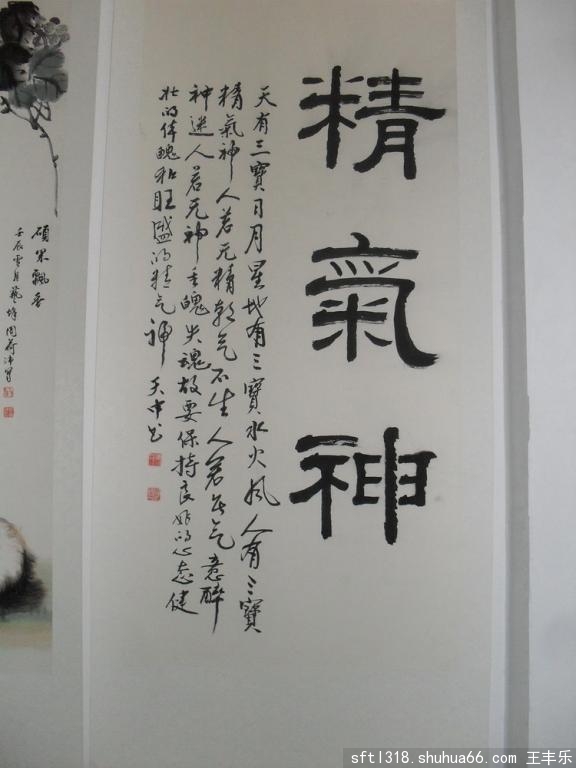 精氣神
天有三寶日月星地有三寶水火风人有三寶
精氣神人若无精朝气不生人若气意醉
神迷人若无神丢魄失魂故要保持良好的心态健
壮的体魄和旺盛的精气神 天中书
碩果飄香
壬辰雪月藝周荷
sftl318.shuhua66.com 王丰乐